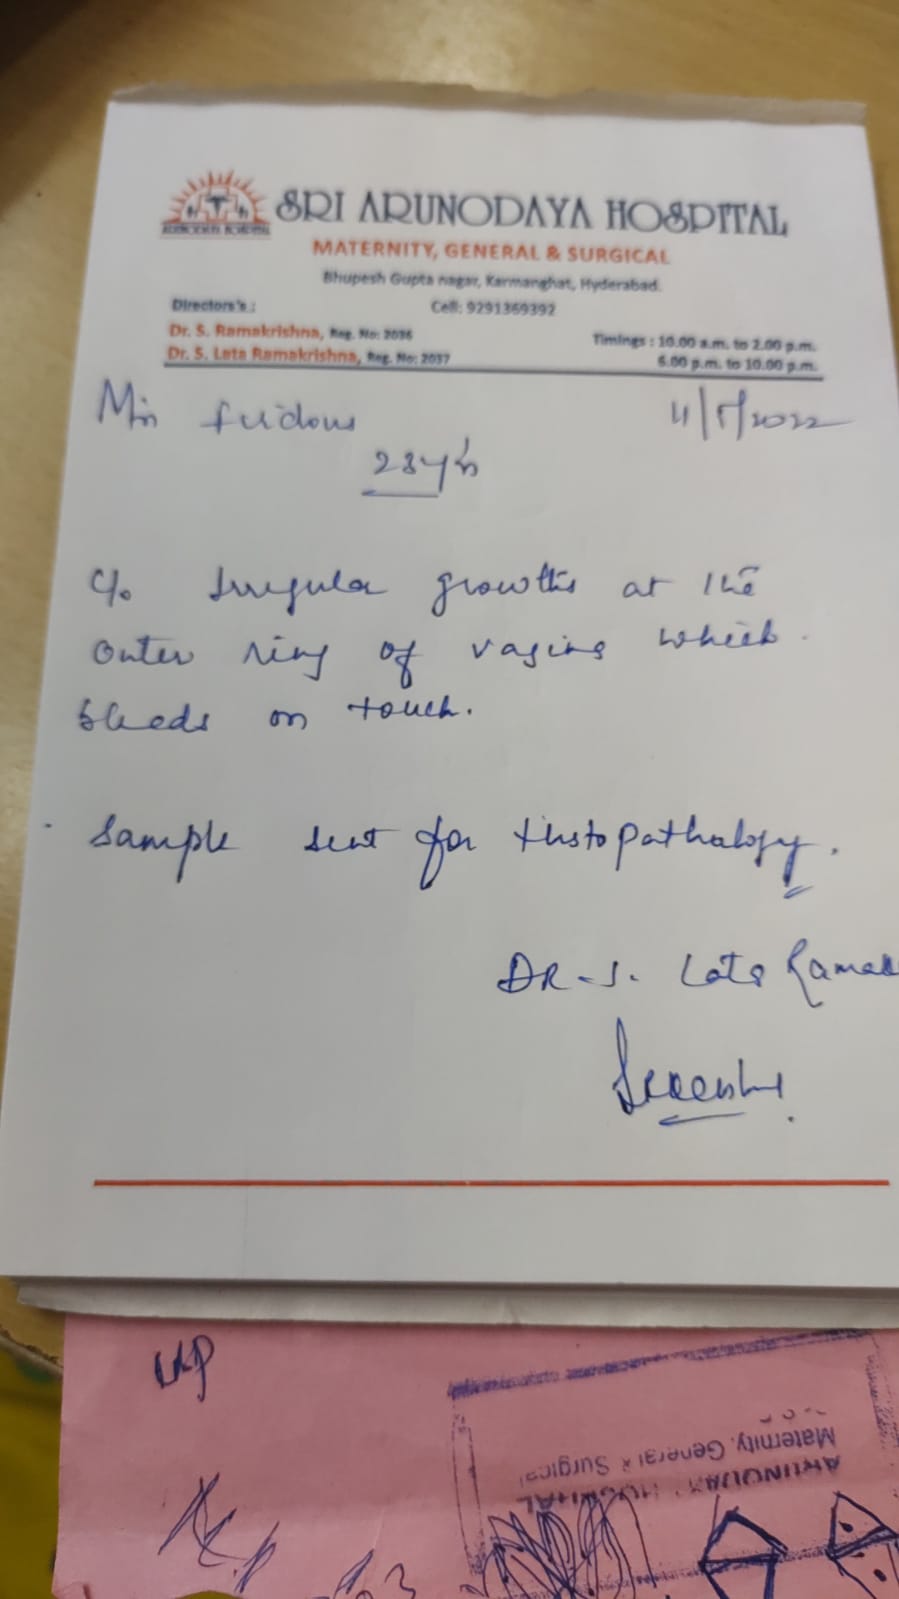 SRI ARUNODAYA HOSPITAL
ARUNODAYA HOSPITAL
MATERNITY, GENERAL & SURGICAL
Bhupesh Gupta nagar, Karmanghat, Hyderabad.
Directors's : Cell: 9291369392
Dr. S. Ramakrishna, Reg. No: 2036
Dr. S. Lata Ramakrishna, Reg. No: 2037
Timings : 10.00 a.m. to 2.00 p.m.
6.00 p.m. to 10.00 p.m.
Firdous
/2022
c/o Irregular growths at the
outer ring of vagina which
bleeds on touch.
Sample sent for Histopathology.
DR. S. Lata Ramak
Maternity, General & Surgical
ARUNODAYA HOSPITAL